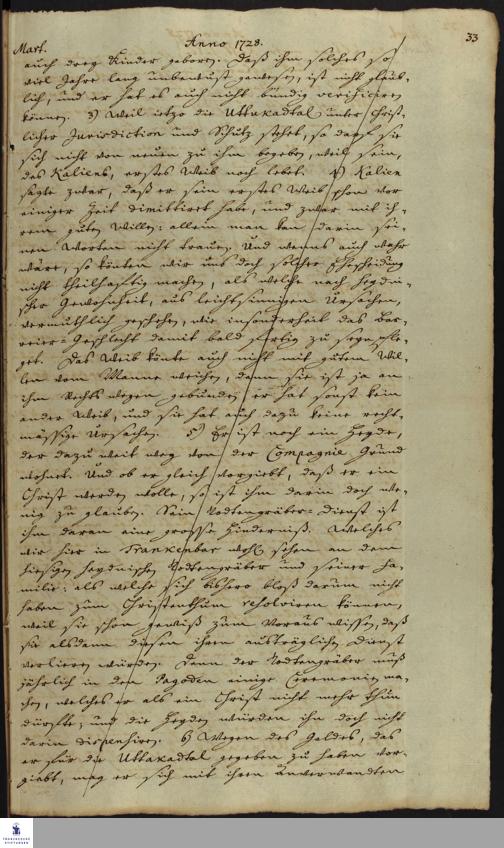 33
Mart. Anno 1728.
auch drey Kinder geboren. Daß ihm solches so
viel Jahre lang unbewust gewesen, ist nicht glaub-
lich, und er hat es auch nicht bündig verificiren
können. 3) Weil ietzo die Uttakadtal unter Christ-
licher Jurisdiction und Schutz stehet, so darf sie
sich nicht von neuen zu ihm begeben, weil sein,
des Kaliens, erstes Weib noch lebet. 4) Kalien
sagte zwar, daß er sein erstes Weib schon vor
einiger Zeit dimittiret habe, und zwar mit ih-
rem guten Willen: allein man kan darin sei-
nen Worten nicht trauen. Und wenns auch wahr
wäre, so könten wir uns doch solcher Ehescheidung
nicht theilhaftig machen, als welche nach heydni-
scher Gewohnheit, aus leichtsinnigen Ursachen,
vermuthlich geschehen, wie insonderheit das Bar-
reier-Geschlecht damit bald fertig zu seyn pfle-
get. Das Weib könte auch nicht mit gutem Wil-
len vom Manne weichen, denn sie ist ja an
ihn Rechts wegen gebunden, er hat sonst kein
ander Weib, und sie hat auch dazu keine recht-
mässige Ursachen. 5) Er ist noch ein Heyde,
der dazu weit weg von der Compagnie Grund
wohnet. Und ob er gleich vorgiebt, daß er ein
Christ werden wolle, so ist ihm darin doch we-
nig zu glauben. Sein Todtengräber-Dienst ist
ihm daran eine grosse Hinderniß. Welches
wir hier in Trankenbar wohl sehen an dem
hiesigen heydnischen Todtengräber und seiner Fa-
milie: als welche sich bishero bloß darum nicht
haben zum Christenthum resolviren können,
weil sie schon gewiß zum Voraus wissen, daß
sie alsdann diesen ihren austräglichen Dienst
verlieren würden. Denn der Todtengräber muß
jährlich in den Pagoden einige Ceremonien ma-
chen, welches er als ein Christ nicht mehr thun
dürfte; und die Heyden würden ihn doch nicht
darin dispensiren. 6) Wegen des Geldes, das
er für die Uttakadtal gegeben zu haben vor-
giebt, mag er sich mit ihren Anverwandten